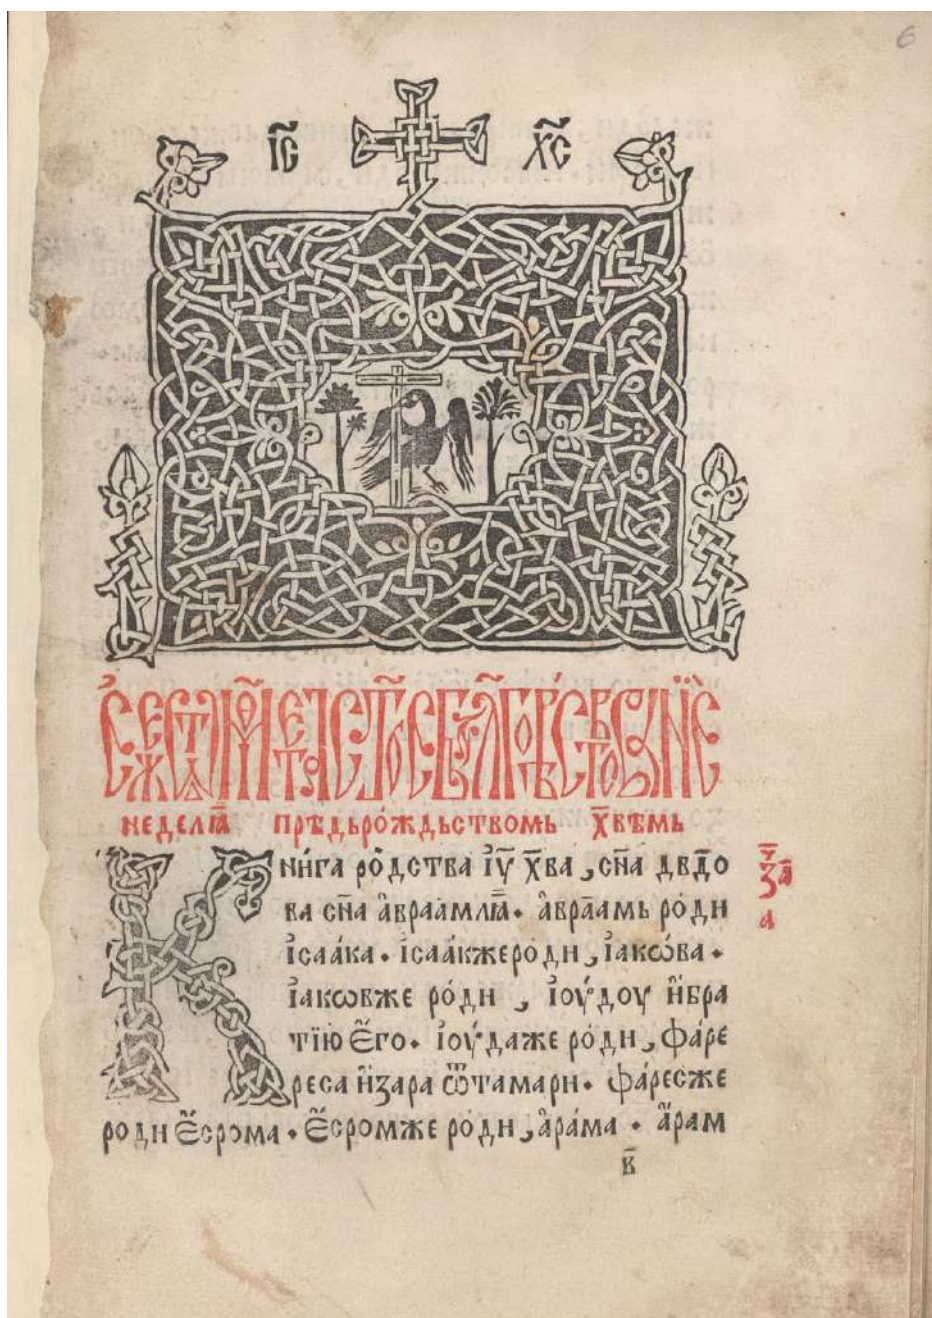 6
І҃С Х҃С
неделꙗ҃ прѣдьро́ждьствомь х҃вѣмь
Кни́га ро́дства і҆у҃ х҃ва , сн҃а дв҃до
ва сн҃а а҆враамлꙗ҃ · а҆враамь ро́ди
і҆саа́ка · і҆саа́кжеро́ди , і҆акѡ́ва ·
і҆акѡвже ро́ди , і҆оу́доу и҆бра
тїю є҆го · і҆оу́даже ро́ди , фа́ре
реса и҆зара ѿтамари · фа́ресже
роди є҆срома · є҆сромже ро́ди , а҆ра́ма · а҆рам
в҃
ч҃
за҃
а